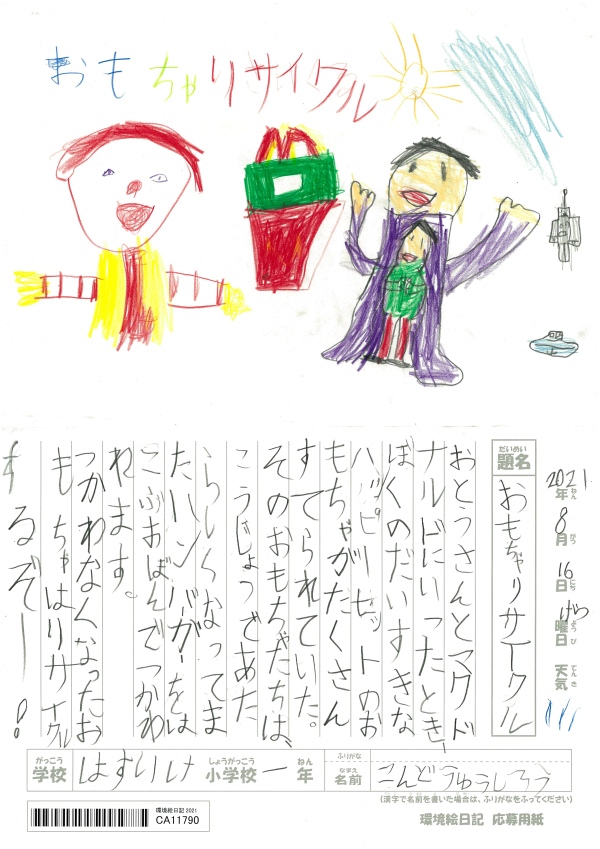 おもちゃリサイクル
2021年ねん
8月がつ
16日にち
げつ曜日ようび
天気てんき
だいめい
題名
おもちゃリサイクル
おとうさんとマクド
ナルドにいったとき、
ぼくのだいすきな
ハッピーセットのお
もちゃがたくさん
すてられていた。
そのおもちゃたちは、
こうじょうであた
らしくなってま
たハンバーガーをは
こぶおぼんでつかわ
れます。
つかわなくなったお
もちゃはリサイクル
するぞー!
がっこう
学校
しょうがっこう
小学校
一
ねん
年
ふりがな
なまえ
名前
こんどうゅうしろう
(漢字で名前を書いた場合は、ふりがなをふってください)
環境絵日記2021
CA11790
環境絵日記 応募用紙